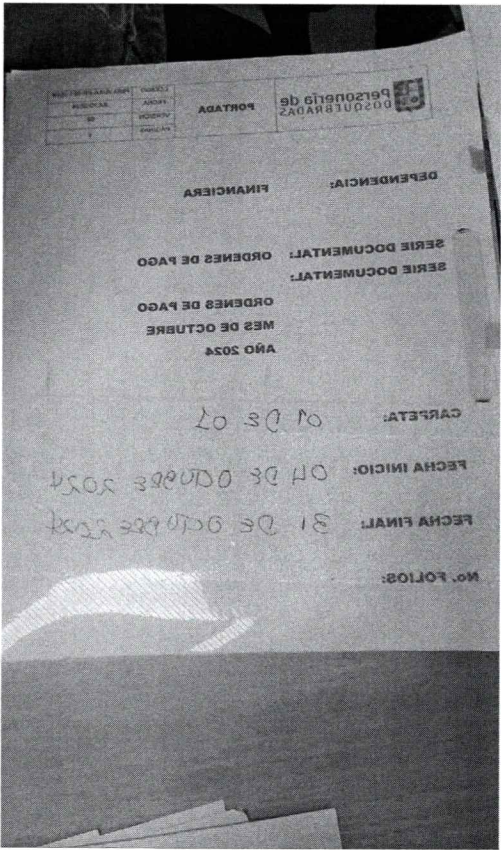 Personería de
DOSQUEBRADAS
PORTADA
CODIGO
FECHA
VERSIÓN
PAGINAS
DEPENDENCIA: FINANCIERA
SERIE DOCUMENTAL: ORDENES DE PAGO
SERIE DOCUMENTAL:
ORDENES DE PAGO
MES DE OCTUBRE
AÑO 2024
CARPETA: 01 DE 02
FECHA INICIO: 04 DE OCTUBRE 2024
FECHA FINAL: 31 DE OCTUBRE 2024
No. FOLIOS: